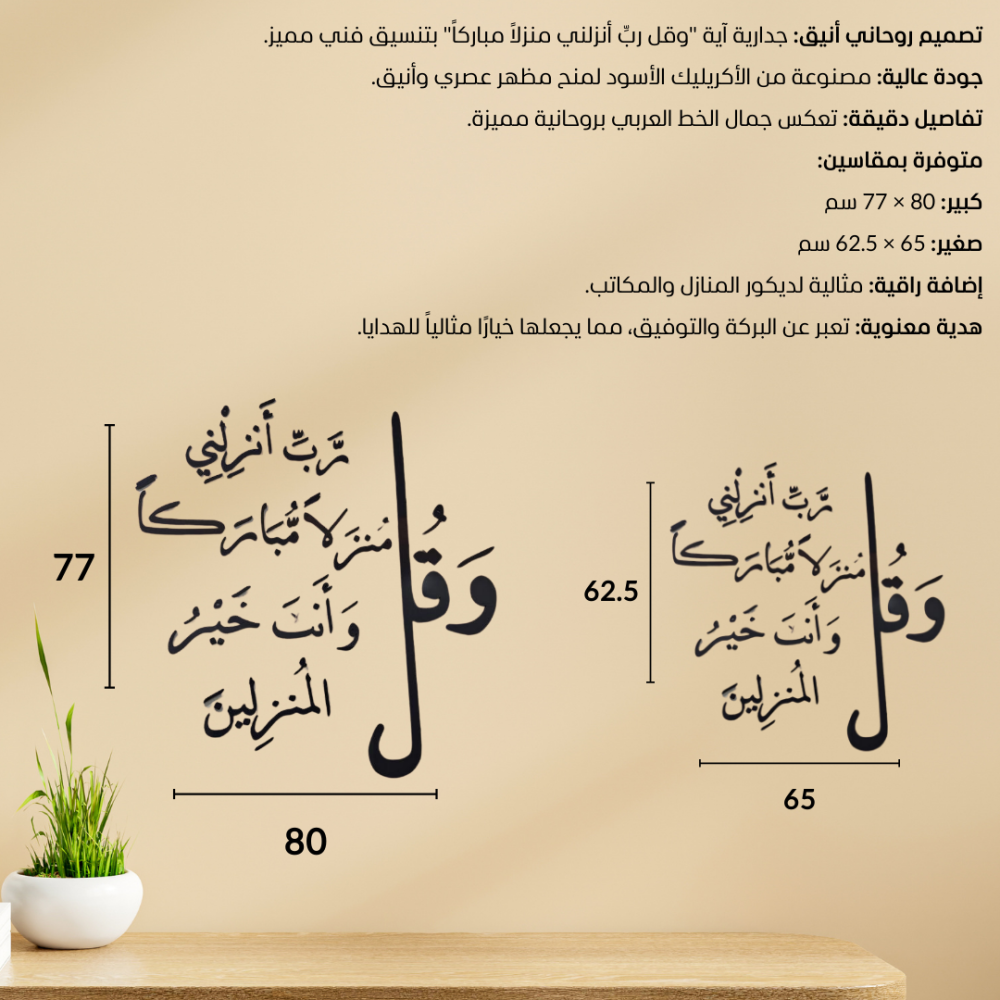 تصميم روحاني أنيق: جدارية آية "وقل ربِّ أنزلني منزلاً مباركاً" بتنسيق فني مميز.
جودة عالية: مصنوعة من الأكريليك الأسود لمنح مظهر عصري وأنيق.
تفاصيل دقيقة: تعكس جمال الخط العربي بروحانية مميزة.
متوفرة بمقاسين:
كبير: 80 × 77 سم
صغير: 65 × 62.5 سم
إضافة راقية: مثالية لديكور المنازل والمكاتب.
هدية معنوية: تعبر عن البركة والتوفيق، مما يجعلها خيارًا مثالياً للهدايا.
وَقُل
رَّبِّ أَنزِلْنِي
مُنزَلاً مُّبَارَكاً
وَأَنتَ خَيْرُ
المُنزِلِينَ
77
80
وَقُل
رَّبِّ أَنزِلْنِي
مُنزَلاً مُّبَارَكاً
وَأَنتَ خَيْرُ
المُنزِلِينَ
62.5
65